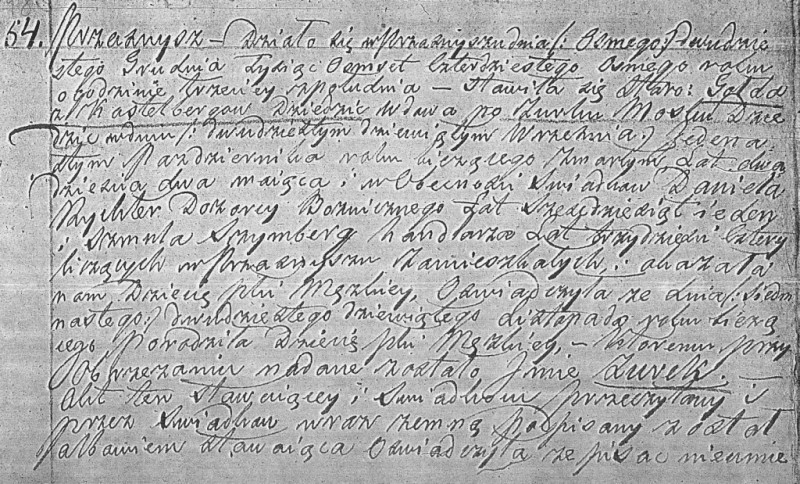 54. Przasnysz – Działo się w Przasnyszu dnia /: Osmego :/ dwudzie
stego Grudnia Tysiąc Osmset Czterdziestego Osmego roku
o godzinie trzeciey z południa – Stawiła się Staro: Golda
z Kastelbergow Dziedzic wdowa po Zurku Mosku Dzie
dzic w dniu /: dwudziestym dziewiątym Września :/ Jedena
stym Pazdziernika roku bieżącego Zmarłym Lat dwa
dzieścia dwa maiąca i w Obecności Swiadkow Daniela
Rychter Dozorcy Boznicznego Lat Szescdziesiąt ieden
i Szmula Szymberg handlarza Lat trzydzieści cztery
liczących w Przasnyszu Zamieszkałych, i okazała
nam Dziecię płci Męzkiey, Oswiadczyła ze dnia /: Siedm
nastego :/ dwudziestego dziewiątego Listopada roku bieżą
cego Porodziła Dziecię płci Męzkiey, – ktoremu przy
Obrzezaniu nadane zostało Imie Zurek –
Akt ten Stawaiącey i Swiadkom przeczytany i
przez Swiadkow wraz zemną podpisany został
albowiem Stawaiąca Oswiadczyła ze pisac nieumie